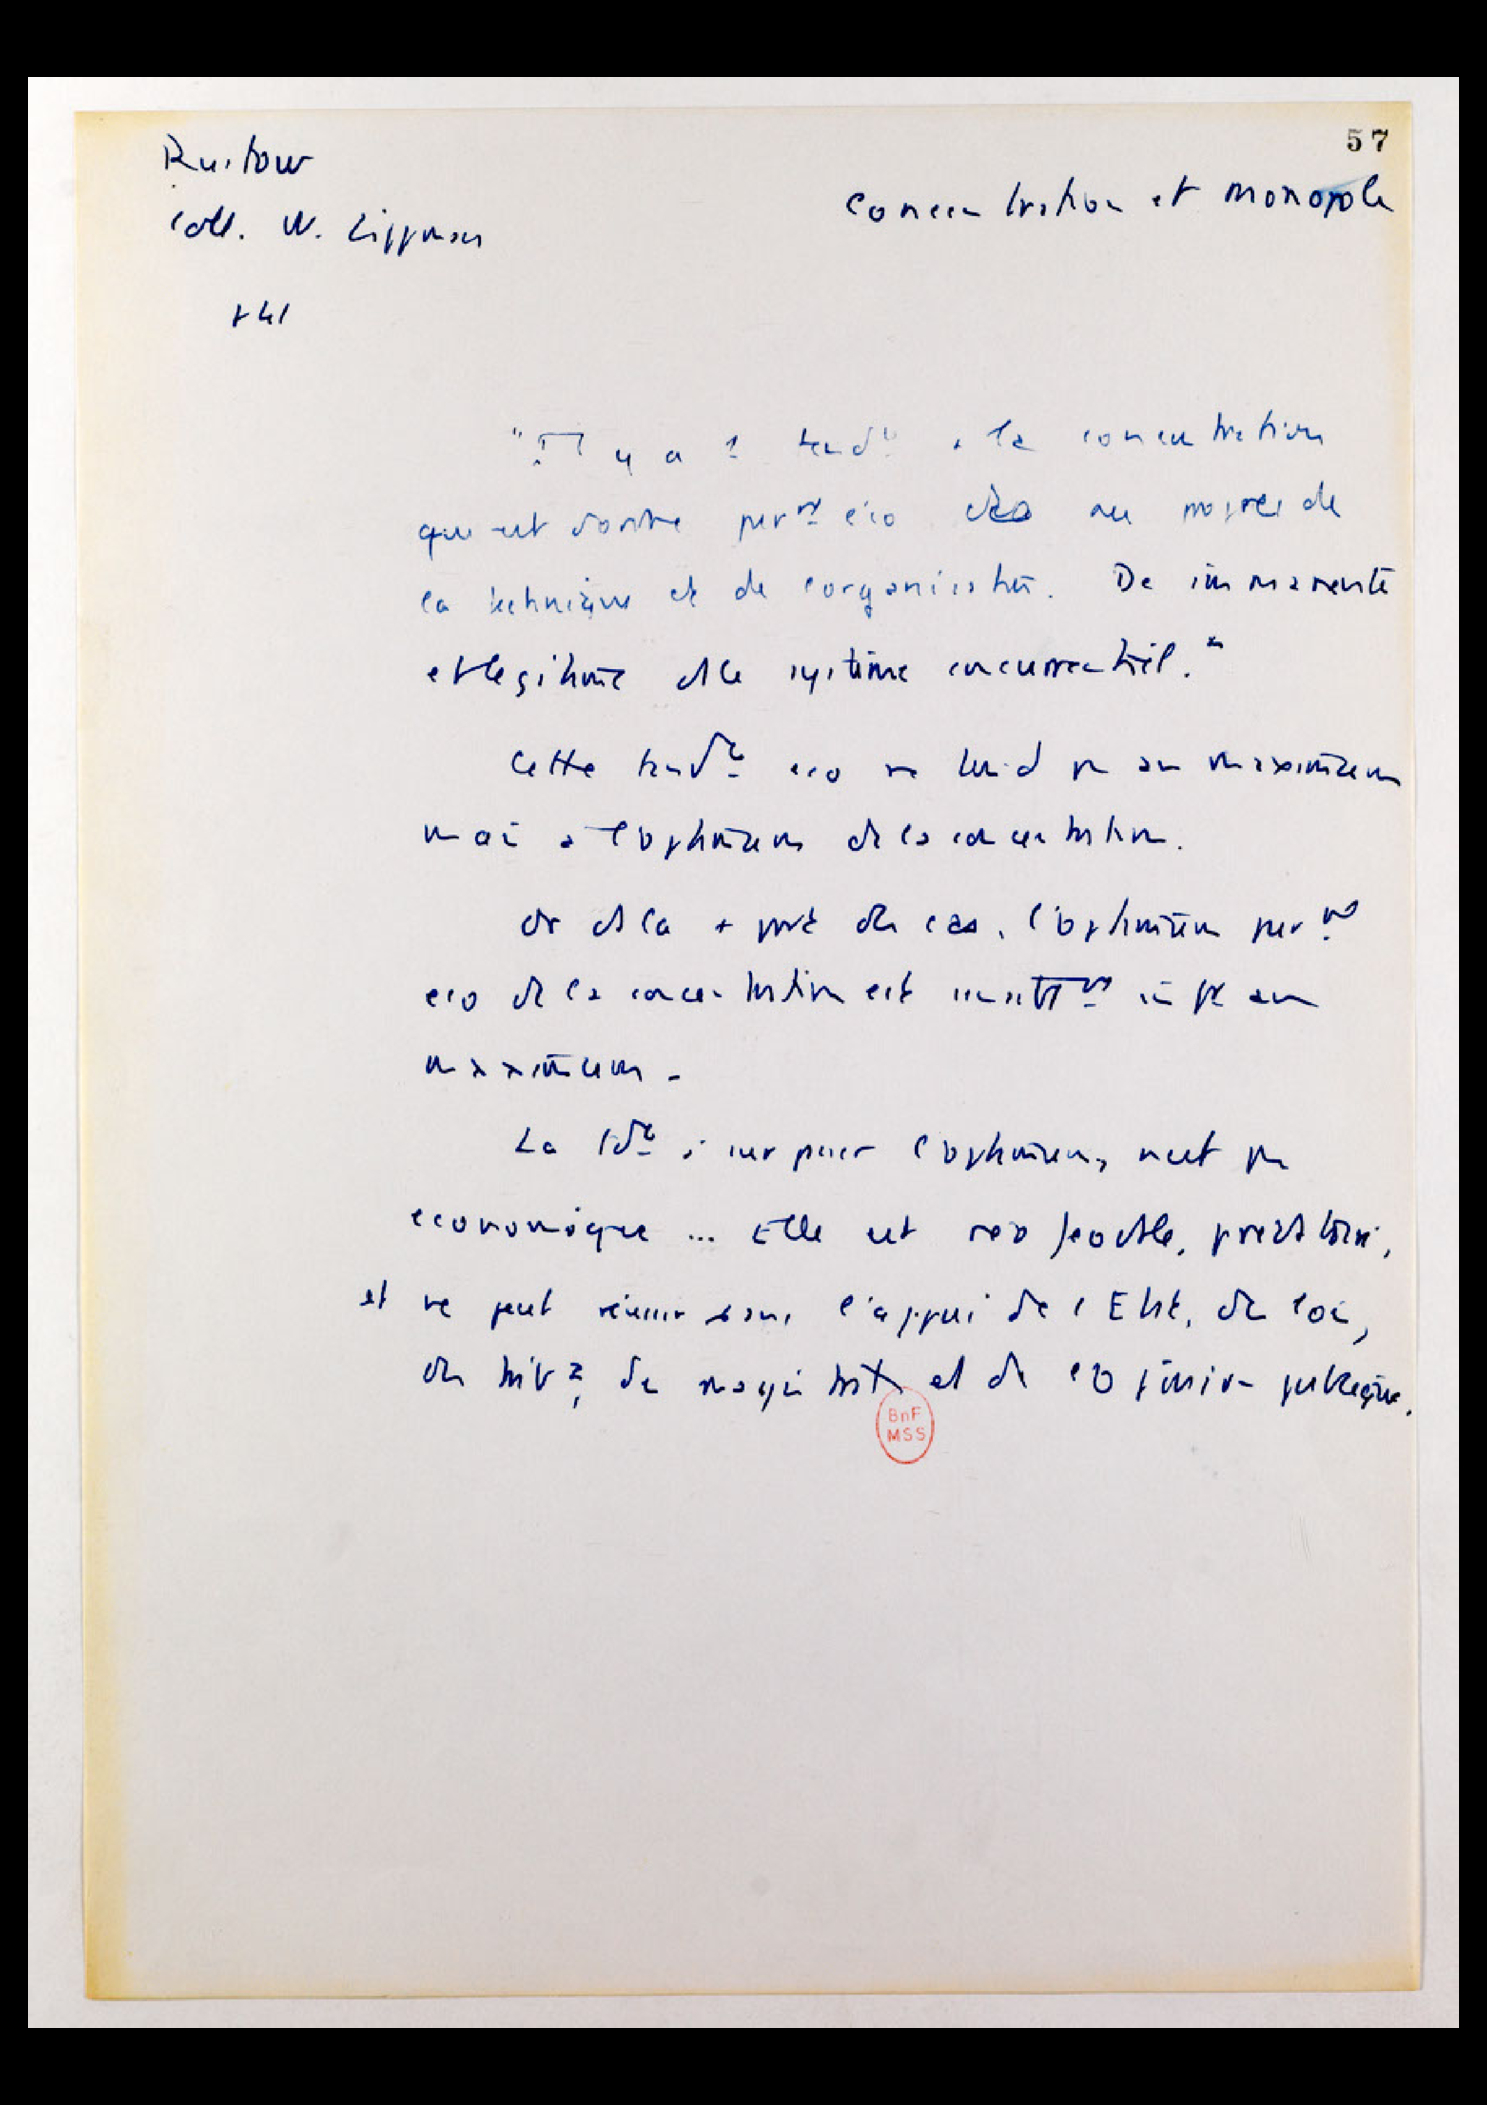 57
Rustow
Coll. W. Lippman
concentration et monopole
"Il y a 1 tendce à la concentration
qui est d'ordre purnt éco au progrès de
la technique et de l'organisation. De immanente
et légitime ds le système concurrentiel."
Cette tendce éco ne tend pas au maximum
mais à l'optimum de la concentration.
Or ds la + part des cas, l'optimum purnt
éco de la concentration est au
maximum.
La tdce à surpasser l'optimum, n'est pas
économique ... Elle est néo féodale, prédatrice,
et ne peut réussir sans l'appui de l'Etat, des lois,
des tribx, des magistrats et de l'opinion publique.
BnF
MSS